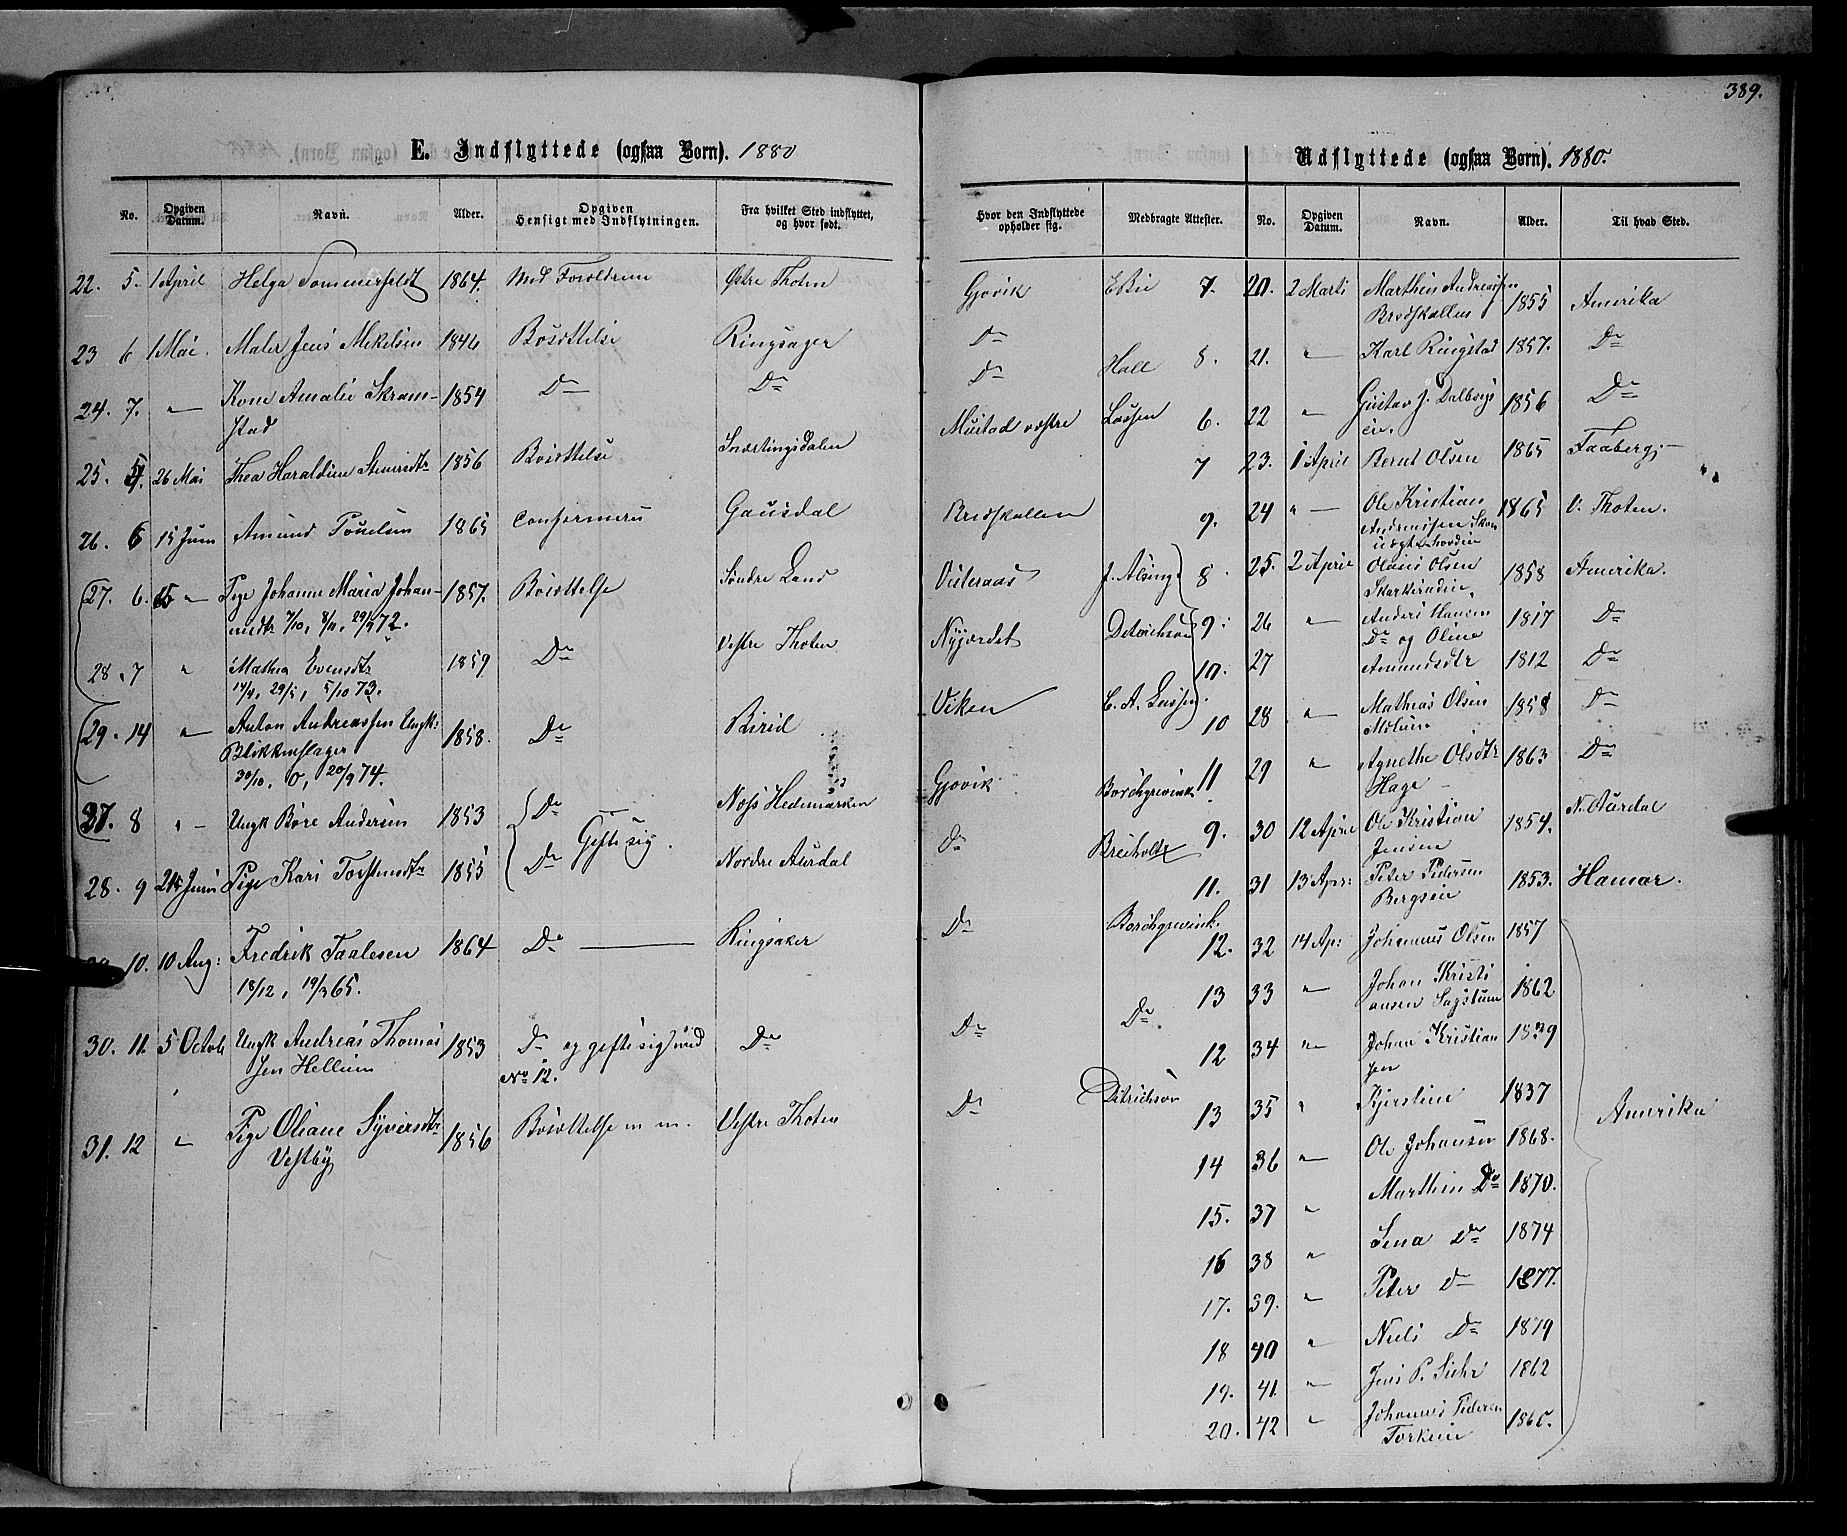 389.
E. Indflyttede (ogsaa Born). 1880
No.
Opgiven Datum.
Navn.
Alder.
Opgiven Hensigt med Indflytningen.
Fra hvilket Sted indflyttet, og hvor født.
Hvor den Indflyttede opholder sig.
Medbragte Attester.
22. 5. 1 April Helga Sommerfeldt 1864. Med Forældrene Østre Thoten Gjøvik
23 6 1 Mai. Maler Jens Mikelsen 1846 Bosættelse Ringsager Do
24. 7. " Kone Amalie Skram- 1854 Do Do Do Hall
stad
25. 26 Mai Thea Haraldine 1856 Bosættelse Snertingsdalen Mustad vestre Lassen
26. 6 15 Juni Amund Poulsen 1865 Confermeres Gausdal Bredskallen
27. 6. 15 " Pige Johanne Maria Johan- 1857. Bosættelse Søndre Land Visteraas J. Alsing
nesdtr 7/10, 8/11, 29/9 72.
28. 7 " Mathea Evensdtr 1859 Do Vestre Thoten Nyjordet Ditrichson
14/4, 29/5, 5/10 73.
29. 14 " Anton Andreassen Ungk: 1858. Do Birid Viken C. A. Lassen
Blikkenslager
30/10, 0, 20/9 74.
27. 8 " Ungk Børe Andersen 1853 Do Næss Hedemarken Gjøvik Borchgrevink
Gifte sig.
28. 9 Juni Pige Kari Torstensdtr 1855 Do Nordre Aurdal Do
10. 10 Aug: Fredrik Taalesen 1864 Do Ringsaker Do Borchgrevink
18/12, 19/3 65.
30. 11. 5 Octob Ungk Andreas Thomas 1853 Do og gifte sig med Do Do Do
sen Hellum No 12.
31. 12 " Pige Oliane Syversdtr 1856 Bosættelse m m. Vestre Thoten Do Ditrichson
Vestby
Udflyttede (ogsaa Børn). 1880.
No.
Opgiven Datum.
Navn.
Alder.
Til hvad Sted.
7. 20. 2 Marts Marthin Andreassen 1855 Amerika
Bredskallen
8. 21. " Karl Ringstad 1857. Do
6. 22 " Gustav J. Dalbergs 1856 Do
7 23. 1 April Bernt Olsen 1865 Faaberg
9. 24 " Ole Kristian 1865 V. Thoten.
Andreassen
8 25. 2 April Olaus Olsen 1858 Amerika.
9. 26 " Anders Hansen 1817 Do
Do og Oline
10. 27 Amundsdtr 1812 Do
10 28 " Mathias Olsen 1858 Do
11 29 " Agnethe Olsdtr 1863 Do
Hage
9. 30 12 April Ole Kristian 1854. N. Aurdal
Jensen
11. 31 13 Apr: Peter Pedersen 1853. Hamar.
Bergsen
12. 32 14 Ap: Johannes Olsen 1857
13 33 " Johan Kristi 1862
ansen Sagstuen
12 34 " Johan Kristian 1839
sen
13 35 " Kjerstine 1837 Amerika
14 36 " Ole Johansen 1868.
15. 37 " Marthin Do 1870.
16 38 " Lena Do 1874
17. 39. " Peter Do 1877.
18 40 " Niels Do 1879
19. 41. " Jens P. 1862
20. 42 " Johannes Pedersen 1860.